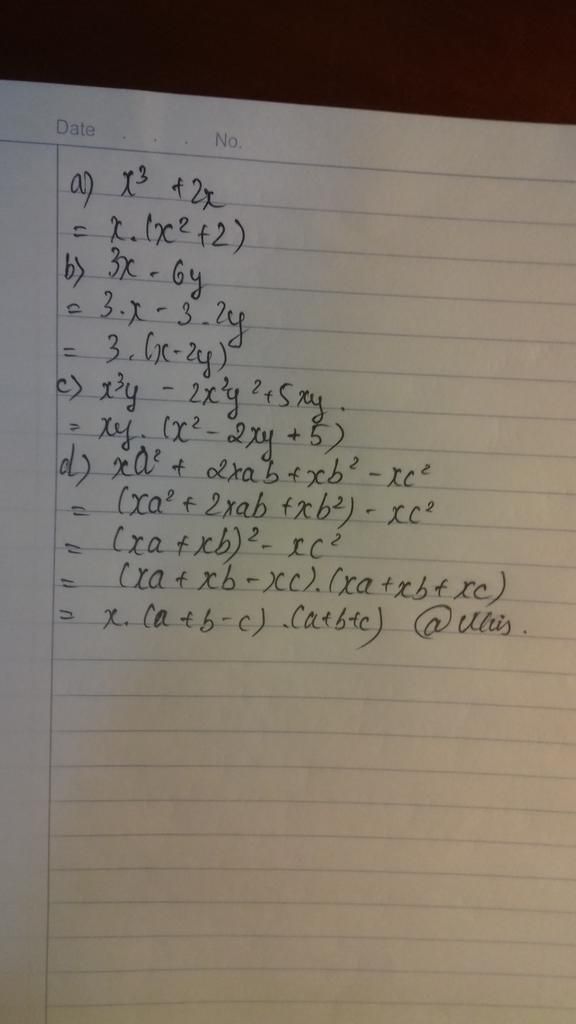 Date . . . No.
a) x³ + 2x
= x.(x² + 2)
b) 3x - 6y
= 3.x - 3.2y
= 3.(x - 2y)
c) x³y - 2x²y² + 5xy.
= xy.(x² - 2xy + 5)
d) xa² + 2xab + xb² - xc²
= (xa² + 2xab + xb²) - xc²
= (xa + xb)² - xc²
= (xa + xb - xc).(xa + xb + xc)
= x.(a + b - c).(a + b + c) @